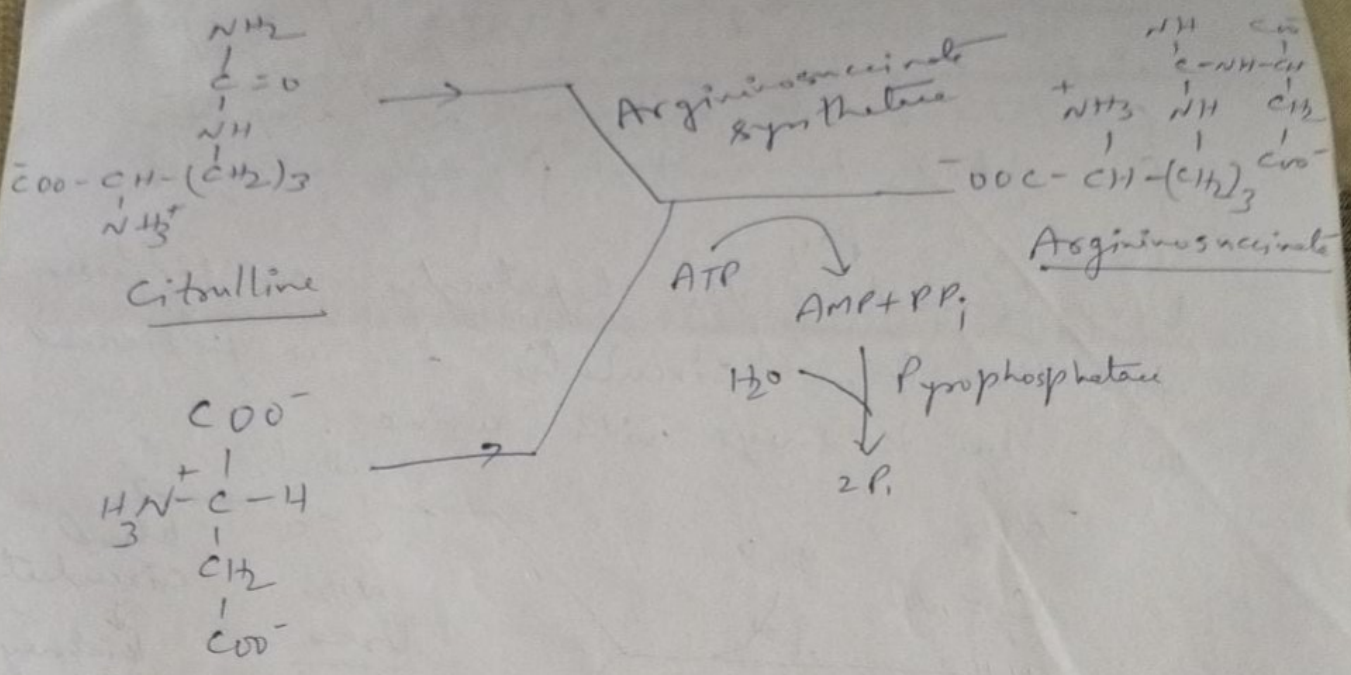 NH2
C=O
NH
-COO-CH-(CH2)3
NH3+
Citrulline
COO-
H3N+-C-H
CH2
COO-
Argininosuccinate
Synthetase
ATP
AMP+PPi
H2O
Pyrophosphatase
2Pi
NH COO
C-NH-CH
+NH3 NH CH2
-OOC-CH-(CH2)3 COO-
Argininosuccinate